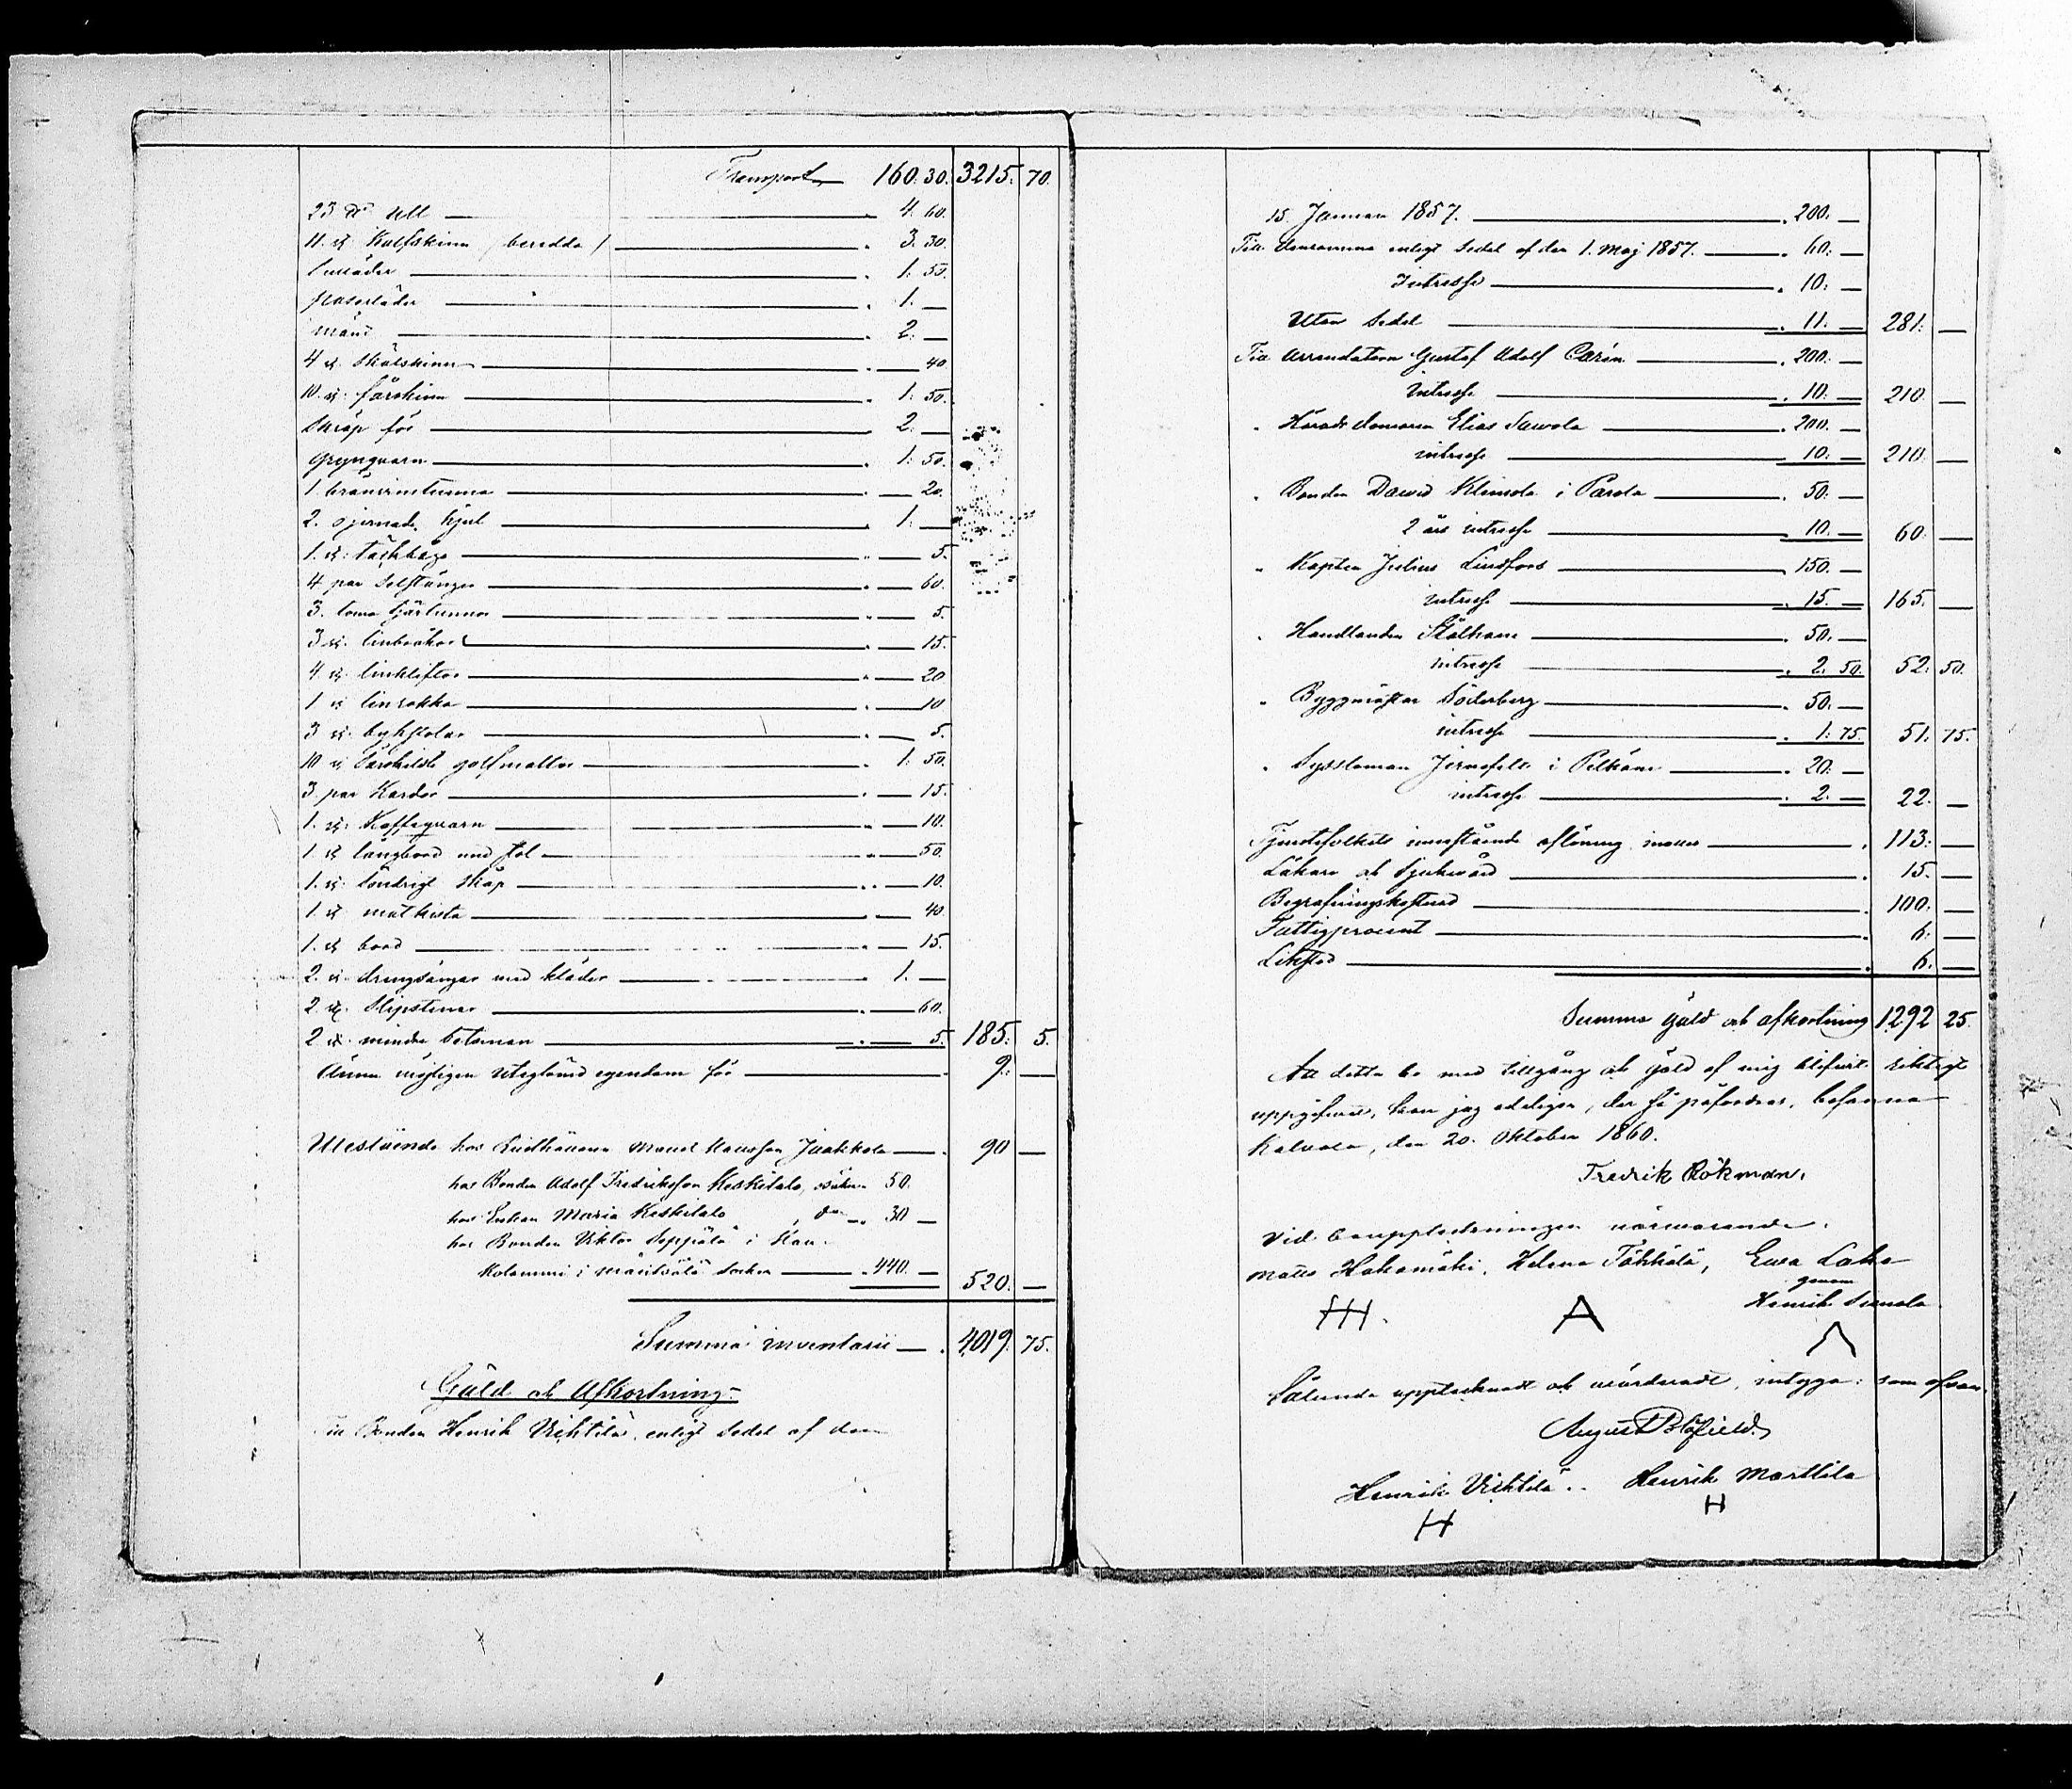 Transport 160. 30. 3215. 70.
23 ℔ ull 4. 60.
11. st. Kalfskinn / beredda / 3. 30.
1. 50.
1. —
2. —
4 st. 40
10. st. fårskinn 1. 50.
Skräp för 2. —
Grynqvarn 1. 50.
1 20.
2. hjul 1. —
1. st. 5.
4 par 60.
3. 5.
3 st. linbråkor 15.
4 st. linkliftor 20
1 st linrokka 10
3 st. bykstolar 5.
10 st Särskilda golfmattor 1. 50.
3 par Kardor 15.
1. st. Kaffeqvarn 10.
1. st långbord med stol 50.
1. st. söndrigt skåp 10.
1. st matkista 40
1. st bord 15.
2. st. drengsängar med kläder 1. —
2 st. Slipstenar 60.
2 st. mindre 5. 185. 5.
Ännu möjligen uteglömd egendom för 9. —
Utestående hos Manuel Hansson Jaakkola 90 —
hos Bonden Adolf Fredriksson Keskitalo, 50.
hos Enkan Maria Keskitalo, d:o 30 —
hos Bonden Viktor Seppälä i Hau-
kolammi i socken 440. — 520. —
Summa inventarii 4,019. 75.
Gäld och Afkortning
Till Bonden Henrik Vichtilä, enligt Sedel af den
15. Januari 1857. 200. —
Till densamma enligt Sedel af den 1. Maj 1857. 60. —
Intresse 10. —
Utan Sedel 11. — 281. —
Till Arrendatorn Gustaf Adolf Carén 200. —
intresse 10. — 210. —
" Härads domaren Elias 200. —
intresse 10. — 210. —
" Bonden David Klemola i Parola 50. —
2 års intresse 10. — 60. —
" Kapten Julius Lindfors 150. —
intresse 15. — 165. —
" Handlanden Stålhane 50. —
intresse 2. 50. 52. 50.
" Byggmästar Söderberg 50. —
intresse 1. 75. 51. 75.
" Syssloman Jernefelt i 20. —
intresse 2. — 22. —
Tjenstefolkets innestående aflöning 113. —
Läkare och Sjukvård 15. —
Begrafningskostnad 100. —
Fattigprocent 6. —
Likstod 6. —
Summa gäld och afkortning 1,292 25.
Att detta bo med tillgång och gäld af mig blifvit riktigt
uppgifvet, kan jag edeligen, der så påfordras, besanna
Kalvola, den 20. Oktober 1860.
Fredrik Rökman.
Vid bouppteckningen närvarande.
Matts Hakamäki, Helena Töhkälä, Ewa Laka
genom
Henrik
HH. A Λ
Sålunda upptecknadt och värderadt, intyga: som ofvan
August Blåfield.
Henrik Vichtilä. Henrik Marttila
H H